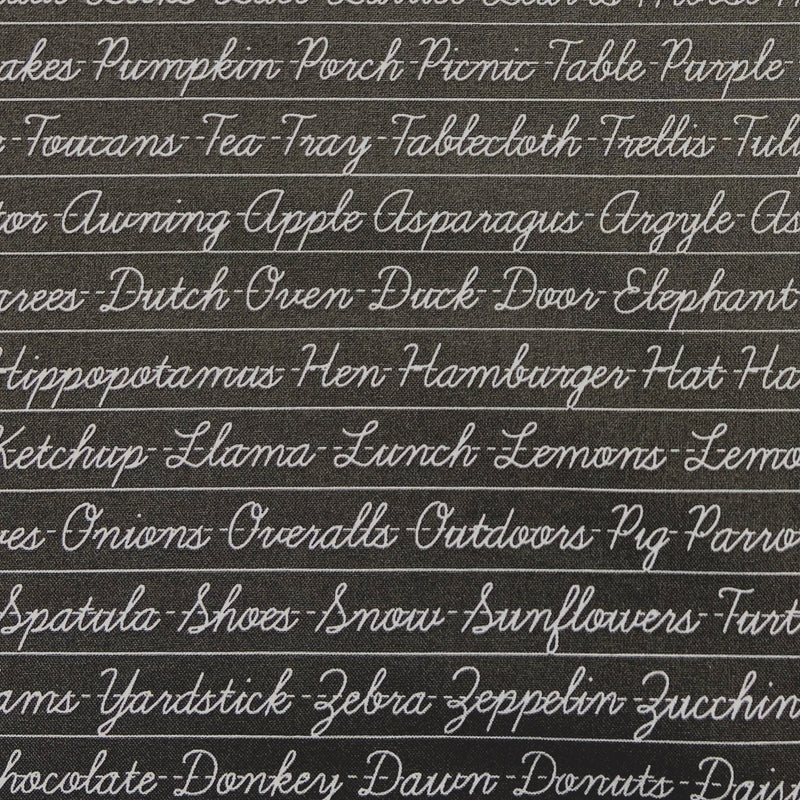 akes Pumpkin Porch Picnic Table Purple
Toucans Tea Tray Tablecloth Trellis Tuli
tor Awning Apple Asparagus Argyle As
arees Dutch Oven Duck Door Elephant
Hippopotamus Hen Hamburger Hat Ha
Ketchup Llama Lunch Lemons Lemo
es Onions Overalls Outdoors Pig Parro
Spatula Shoes Snow Sunflowers Turt
ams Yardstick Zebra Zeppelin Zucchin
hocolate Donkey Dawn Donuts Dais